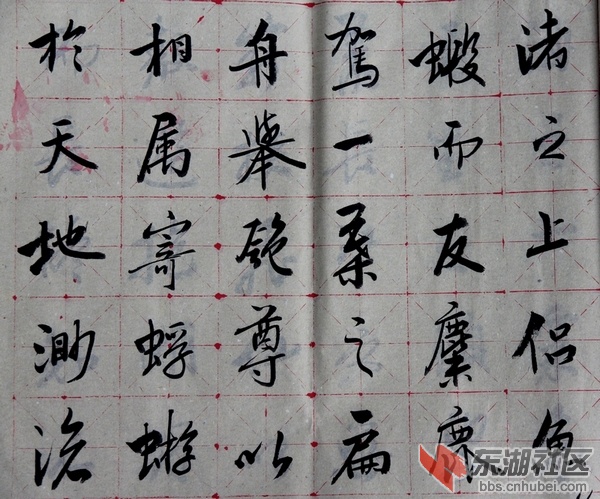 渚之上侣鱼
蝦而友麋鹿
駕一葉之扁
舟舉匏尊以
相属寄蜉蝣
於天地渺滄
东湖社区
bbs.cnhubei.com